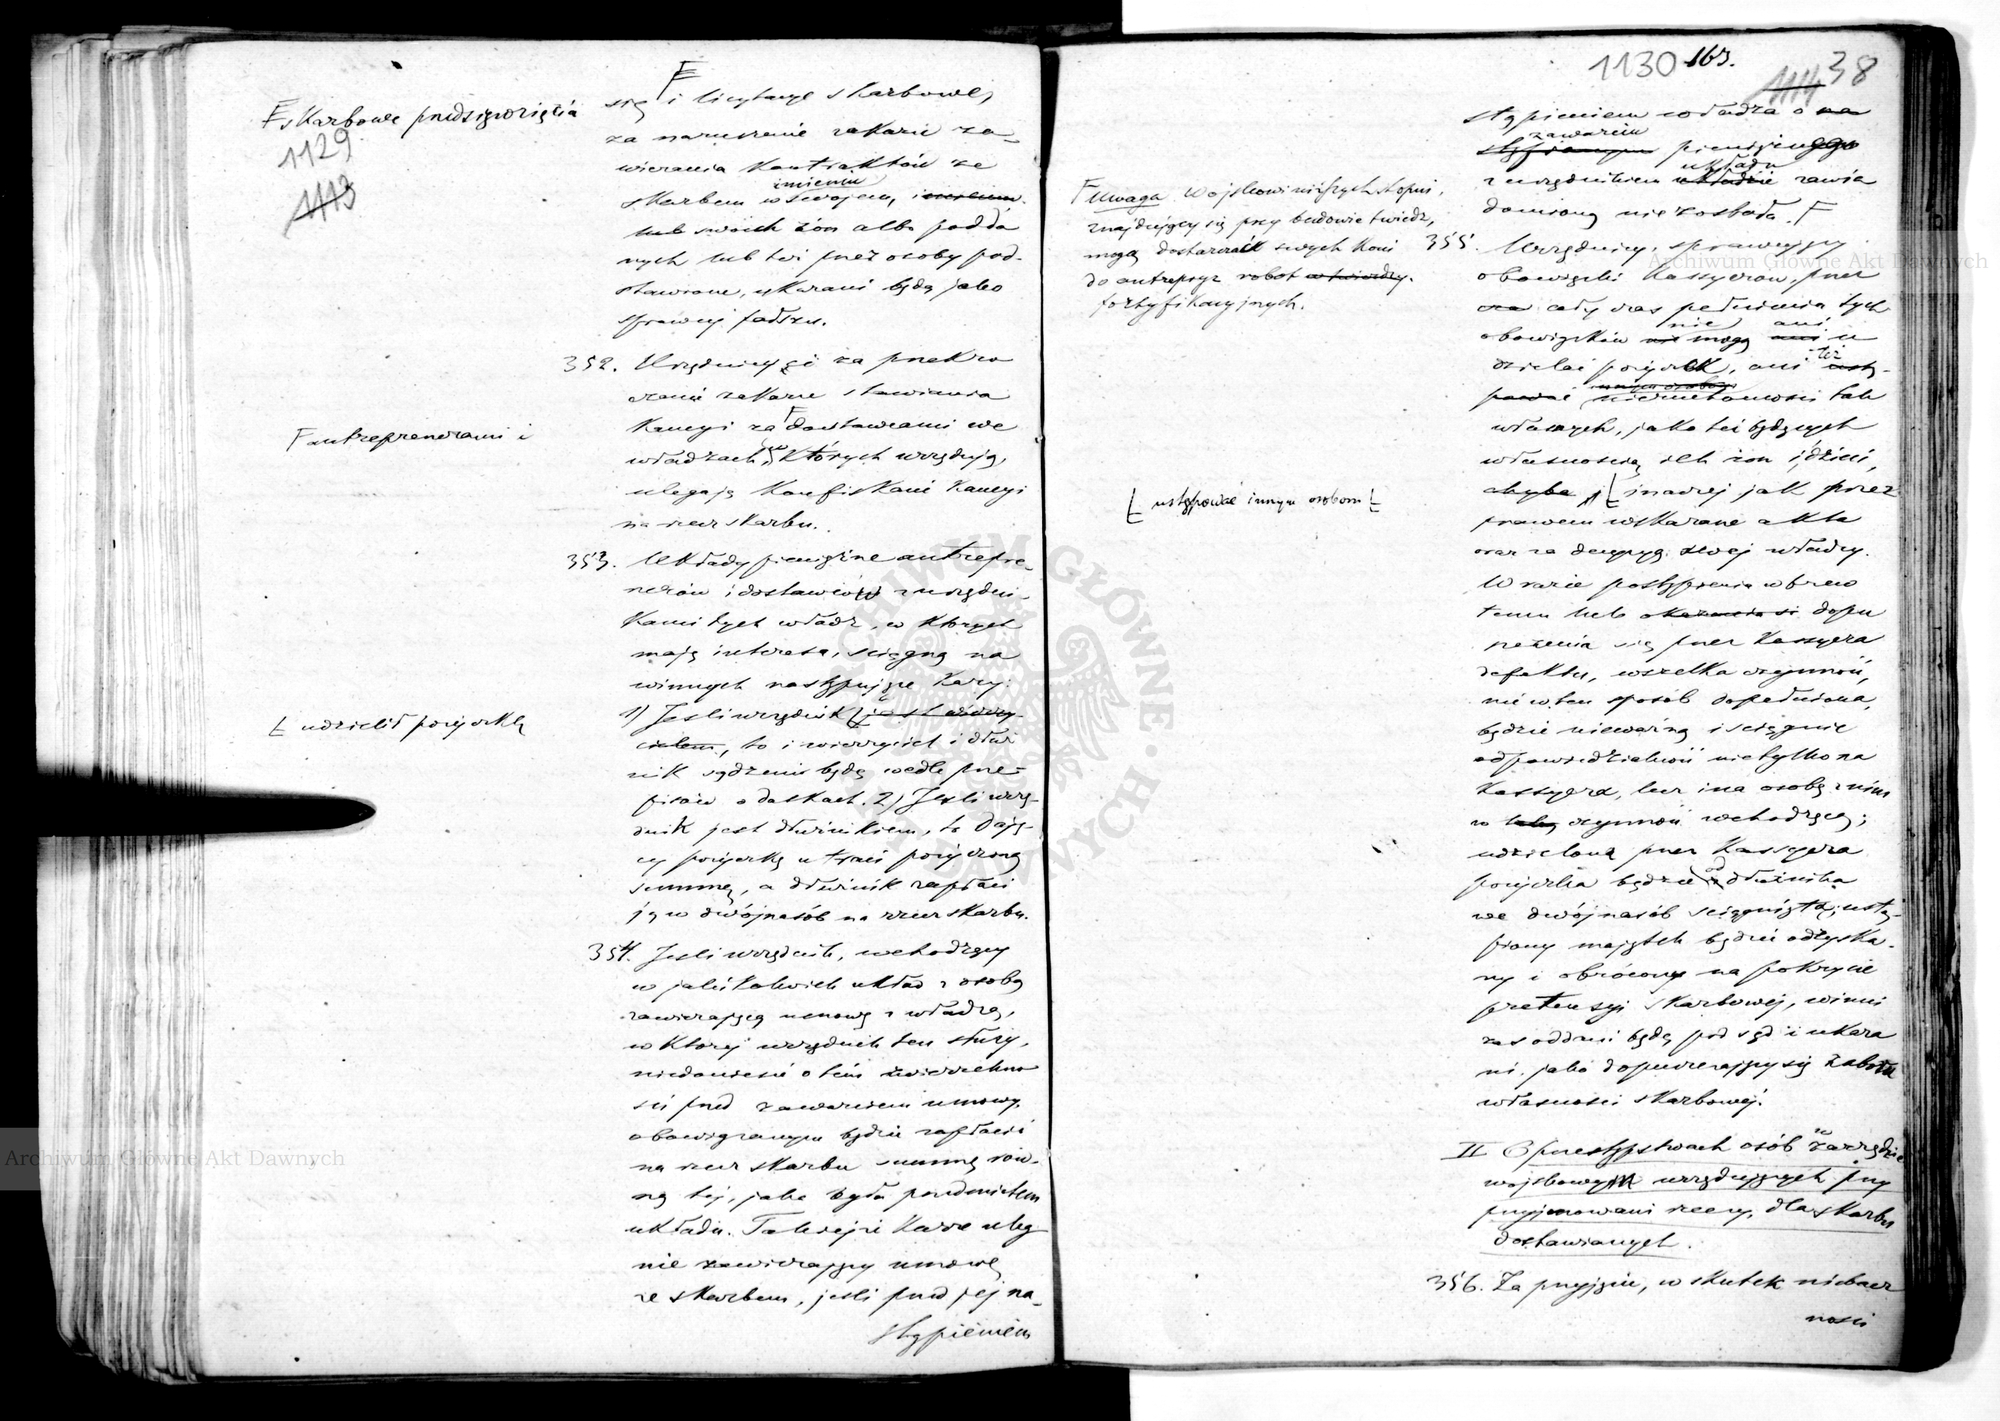 F skarbowe przedsięwzięcia
1129
1113
się F i licytacye skarbowe,
za naruszenie zakazu za-
wierania kontraktów ze
skarbem w swojem imieniu
lub swoich żon albo podda
nych lub też przez osoby pod-
stawione, ukarani będą jako
sprawcy fałszu.
352. Urzędnicy zaś za przekro
czenie zakazu stawienia
Kaucyi za F dostawcami we
władzach, w których urzędują,
ulegają Konfiskacie Kaucyi
na rzecz skarbu.
F antreprenerami i
353. Układy pieniężne antrepre-
nerów i dostawców z urzędni-
kami tych władz, w których
mają interesa, ściągną na
winnych następujące Kary:
1) Jeśli urzędnik jest wierzy-
cielem, to i wierzyciel i dłuż
nik sądzeni będą wedle prze-
pisów o datkach. 2) Jeśli urzę-
dnik jest dłużnikiem, to dają-
cy pożyczkę utraci pożyczoną
summę, a dłużnik zapłaci
ją w dwójnasób na rzecz skarbu.
Ł udzielił pożyczkę
354. Jeśli urzędnik, wchodzący
w jakikolwiek układ z osobą
zawierającą umowę z władzą,
w której urzędnik ten służy,
niedoniesie o tém zwierzchno
ści przed zawarciem umowy,
obowiązanym będzie zapłacić
na rzecz skarbu summę rów-
ną tej, jaka była przedmiotem
układu. Takiejże Karze uleg
nie zawierający umowę
ze skarbem, jeśli przed jej na-
stąpieniem
1130 163.
1114 38
stąpieniem władza o
zawarciu pieniężnego
z urzędnikiem układu zawia
domioną nie została. F
F Uwaga. Wojskowi niższych stopni,
znajdujący się przy budowie twierdz,
mogą dostarczać swych koni
do antrepryz robot w twierdzy.
fortyfikacyjnych.
355. Urzędnicy, sprawujący
obowiązki Kassyerów, przez
cały czas pełnienia tych
obowiązków nie mogą ani u
dzielać pożyczek, ani też
nieruchomości tak
własnych, jako też będących
własnością ich żon i dzieci,
chyba Ł inaczej jak przez
prawem wskazane akta
oraz za decyzyą swej władzy.
W razie postąpienia wbrew
temu lub okazania się dopu
szczenia się przez Kassyera
defektu, wszelka czynność,
nie w ten sposób dopełniona,
będzie nieważną i ściągnie
odpowiedzialność nietylko na
Kassyera, lecz i na osobę z nim
w czynność wchodzącą;
udzielona przez Kassyera
pożyczka będzie od dłużnika
we dwójnasób ściągnięta; ustą-
piony majątek będzie odzyska-
ny i obrócony na pokrycie
pretensyi skarbowéj, winni
zaś oddani będą pod sąd i ukara
ni, jako dopuszczający się zaboru
własności skarbowéj.
Ł ustępować innym osobom Ł
II O przestępstwach osób w zarządzie
wojskowym urzędujących przy
przyjmowaniu rzeczy, dla skarbu
dostawianych.
356. Za przyjęcie, w skutek niebacz
ności
Archiwum Główne Akt Dawnych
Archiwum Główne Akt Dawnych
ARCHIWUM GŁÓWNE AKT DAWNYCH